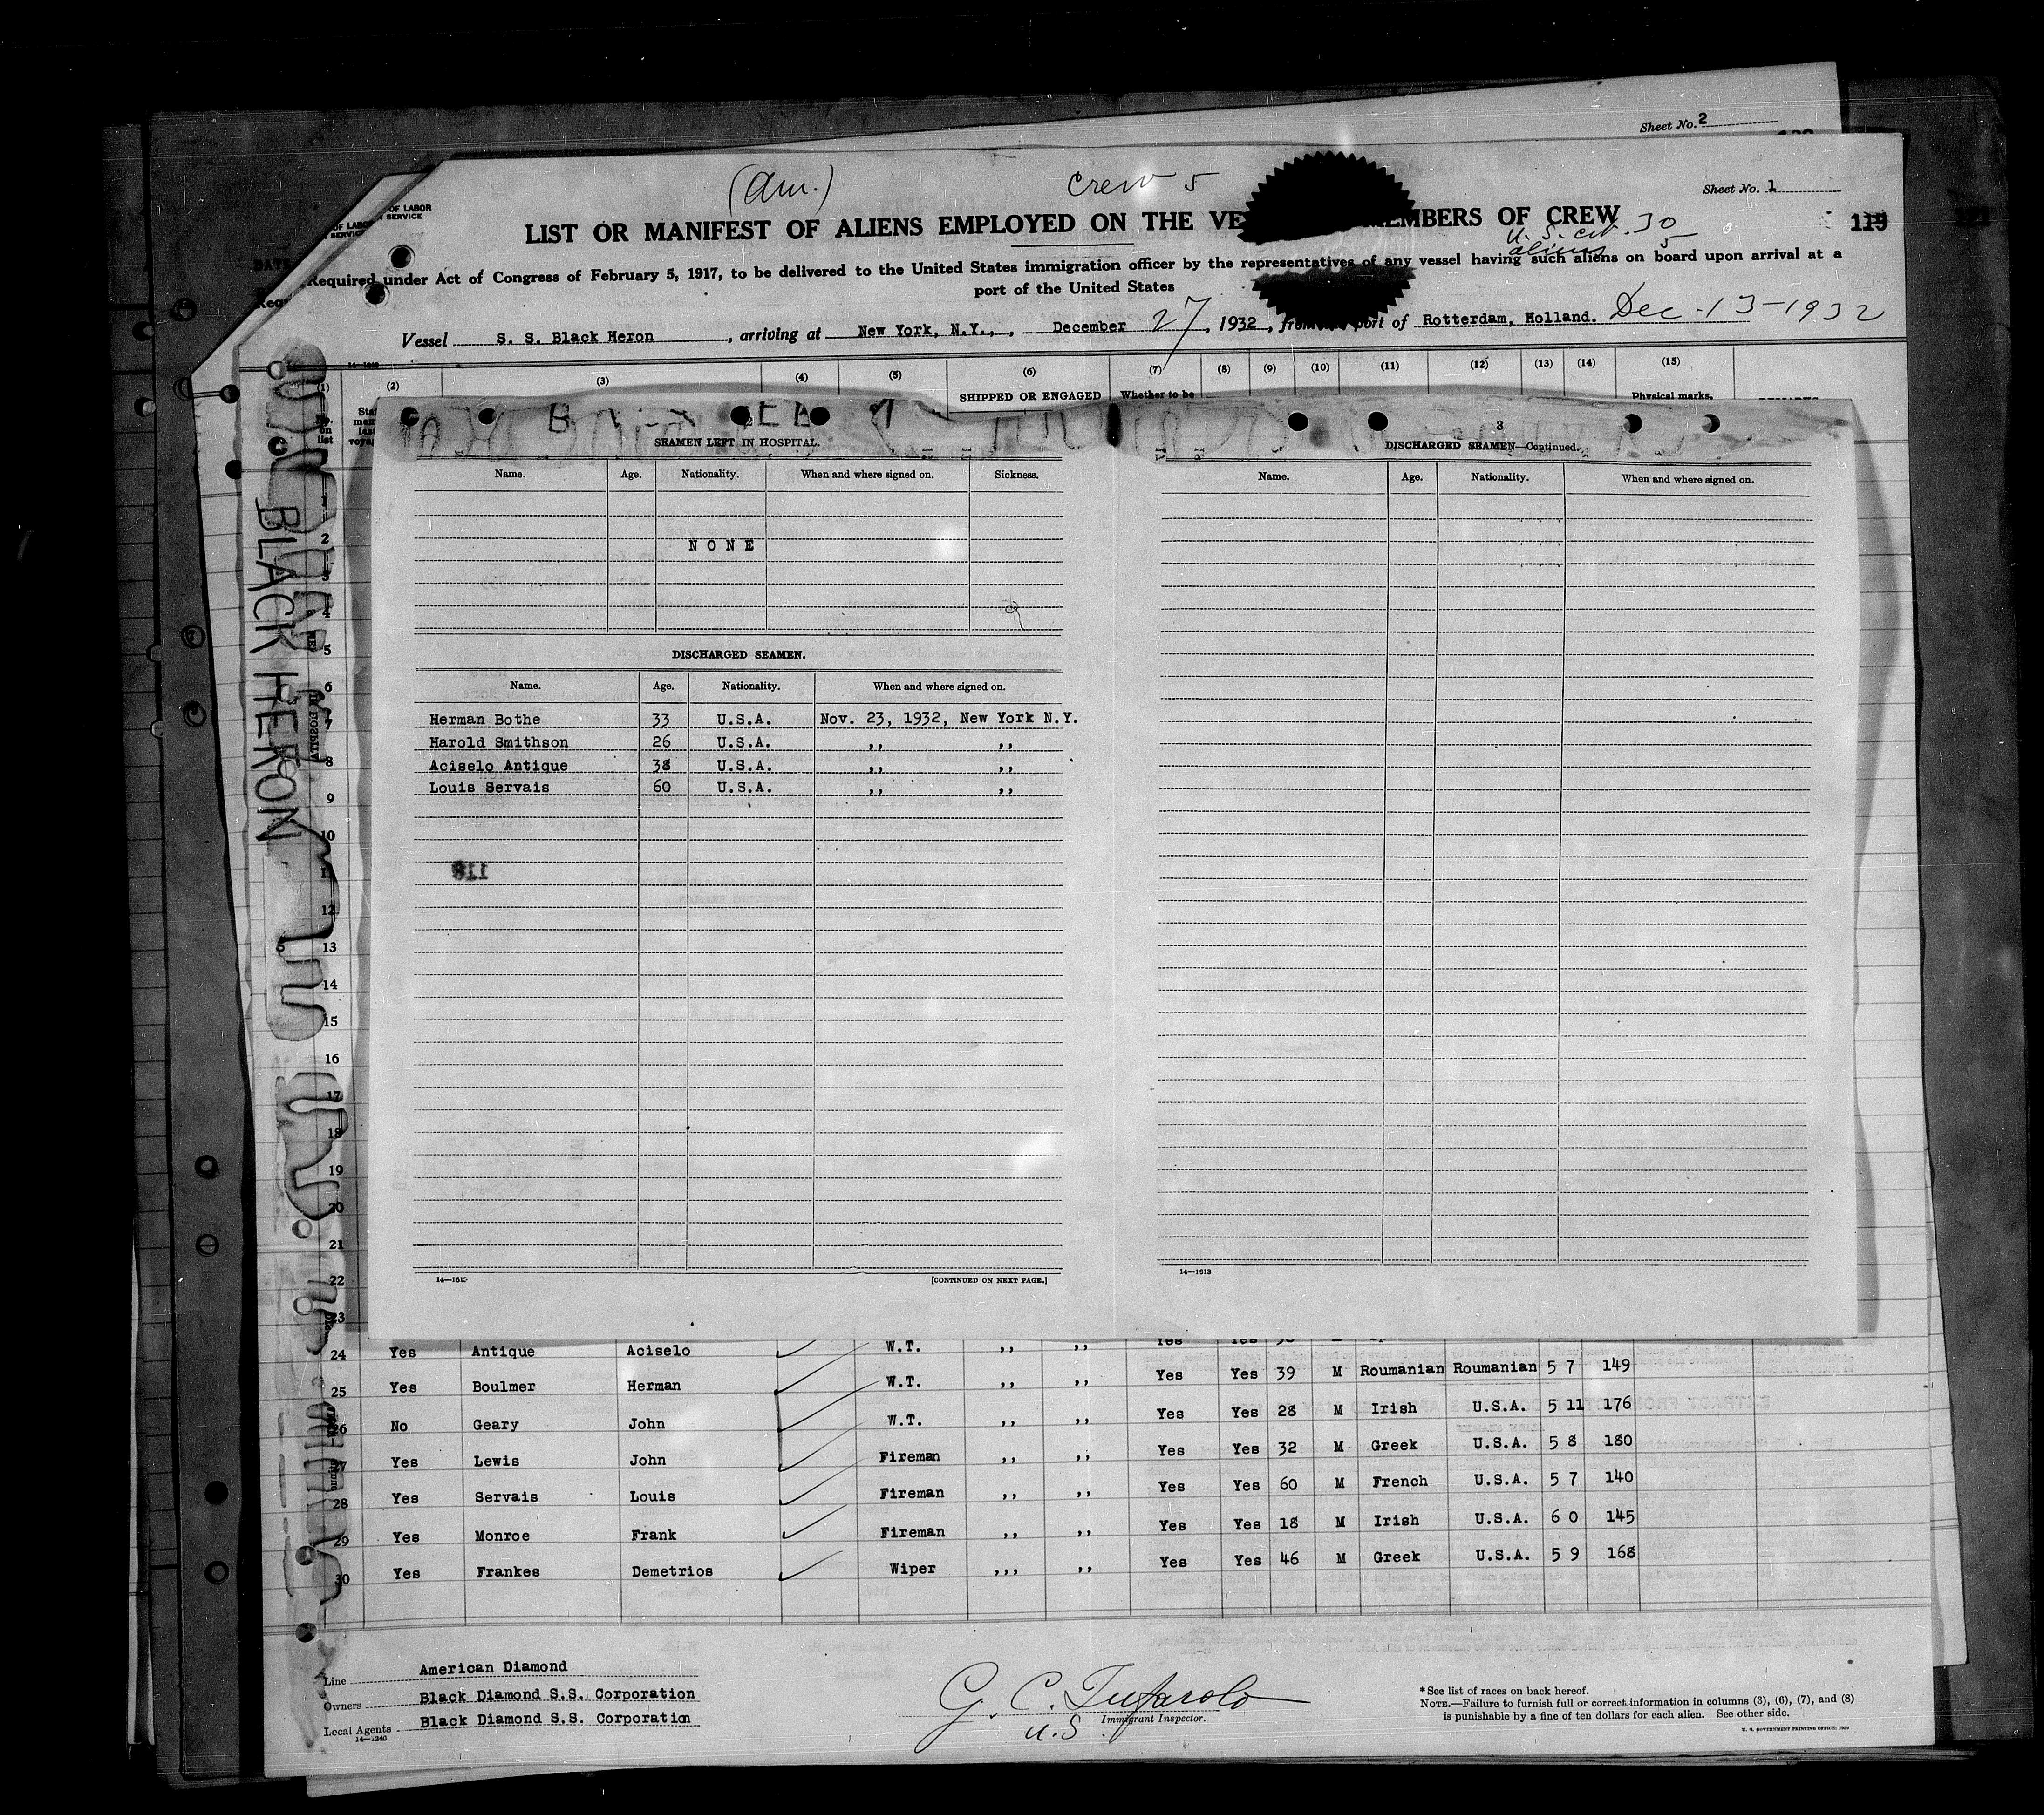 Sheet No. 2
(Am.) Crew 5 Sheet No. 1
OF LABOR
SERVICE
LIST OR MANIFEST OF ALIENS EMPLOYED ON THE VE MEMBERS OF CREW
119
U. S. cit. 30
aliens 5
Required under Act of Congress of February 5, 1917, to be delivered to the United States immigration officer by the representatives of any vessel having such aliens on board upon arrival at a
port of the United States
Vessel S. S. Black Heron, arriving at New York, N.Y., December 27, 1932, from port of Rotterdam, Holland. Dec - 13 - 1932
(1) (2) (3) (4) (5) (6) (7) (8) (9) (10) (11) (12) (13) (14) (15)
SHIPPED OR ENGAGED Whether to be Physical marks,
No. on list
BLACK HERON
2 3
SEAMEN LEFT IN HOSPITAL. DISCHARGED SEAMEN—Continued.
Name. Age. Nationality. When and where signed on. Sickness. Name. Age. Nationality. When and where signed on.
NONE
DISCHARGED SEAMEN.
Name. Age. Nationality. When and where signed on.
Herman Bothe 33 U.S.A. Nov. 23, 1932, New York N.Y.
Harold Smithson 26 U.S.A. ,, ,,
Aciselo Antique 38 U.S.A. ,, ,,
Louis Servais 60 U.S.A. ,, ,,
118
14—1613 [CONTINUED ON NEXT PAGE.] 14—1613
1
2
3
4
5
6
7
8
9
10
11
12
13
14
15
16
17
18
19
20
21
22
23
24 Yes Antique Aciselo W.T. ,, ,, Yes Yes
25 Yes Boulmer Herman W.T. ,, ,, Yes Yes 39 M Roumanian Roumanian 5 7 149
26 No Geary John W.T. ,, ,, Yes Yes 28 M Irish U.S.A. 5 11 176
27 Yes Lewis John Fireman ,, ,, Yes Yes 32 M Greek U.S.A. 5 8 180
28 Yes Servais Louis Fireman ,, ,, Yes Yes 60 M French U.S.A. 5 7 140
29 Yes Monroe Frank Fireman ,, ,, Yes Yes 18 M Irish U.S.A. 6 0 145
30 Yes Frankes Demetrios Wiper ,,, ,, Yes Yes 46 M Greek U.S.A. 5 9 168
Line American Diamond
Owners Black Diamond S.S. Corporation
Local Agents Black Diamond S.S. Corporation
14—1240
G. C. Tufarolo
U.S. Immigrant Inspector.
* See list of races on back hereof.
NOTE.—Failure to furnish full or correct information in columns (3), (6), (7), and (8)
is punishable by a fine of ten dollars for each alien. See other side.
U. S. GOVERNMENT PRINTING OFFICE: 1929